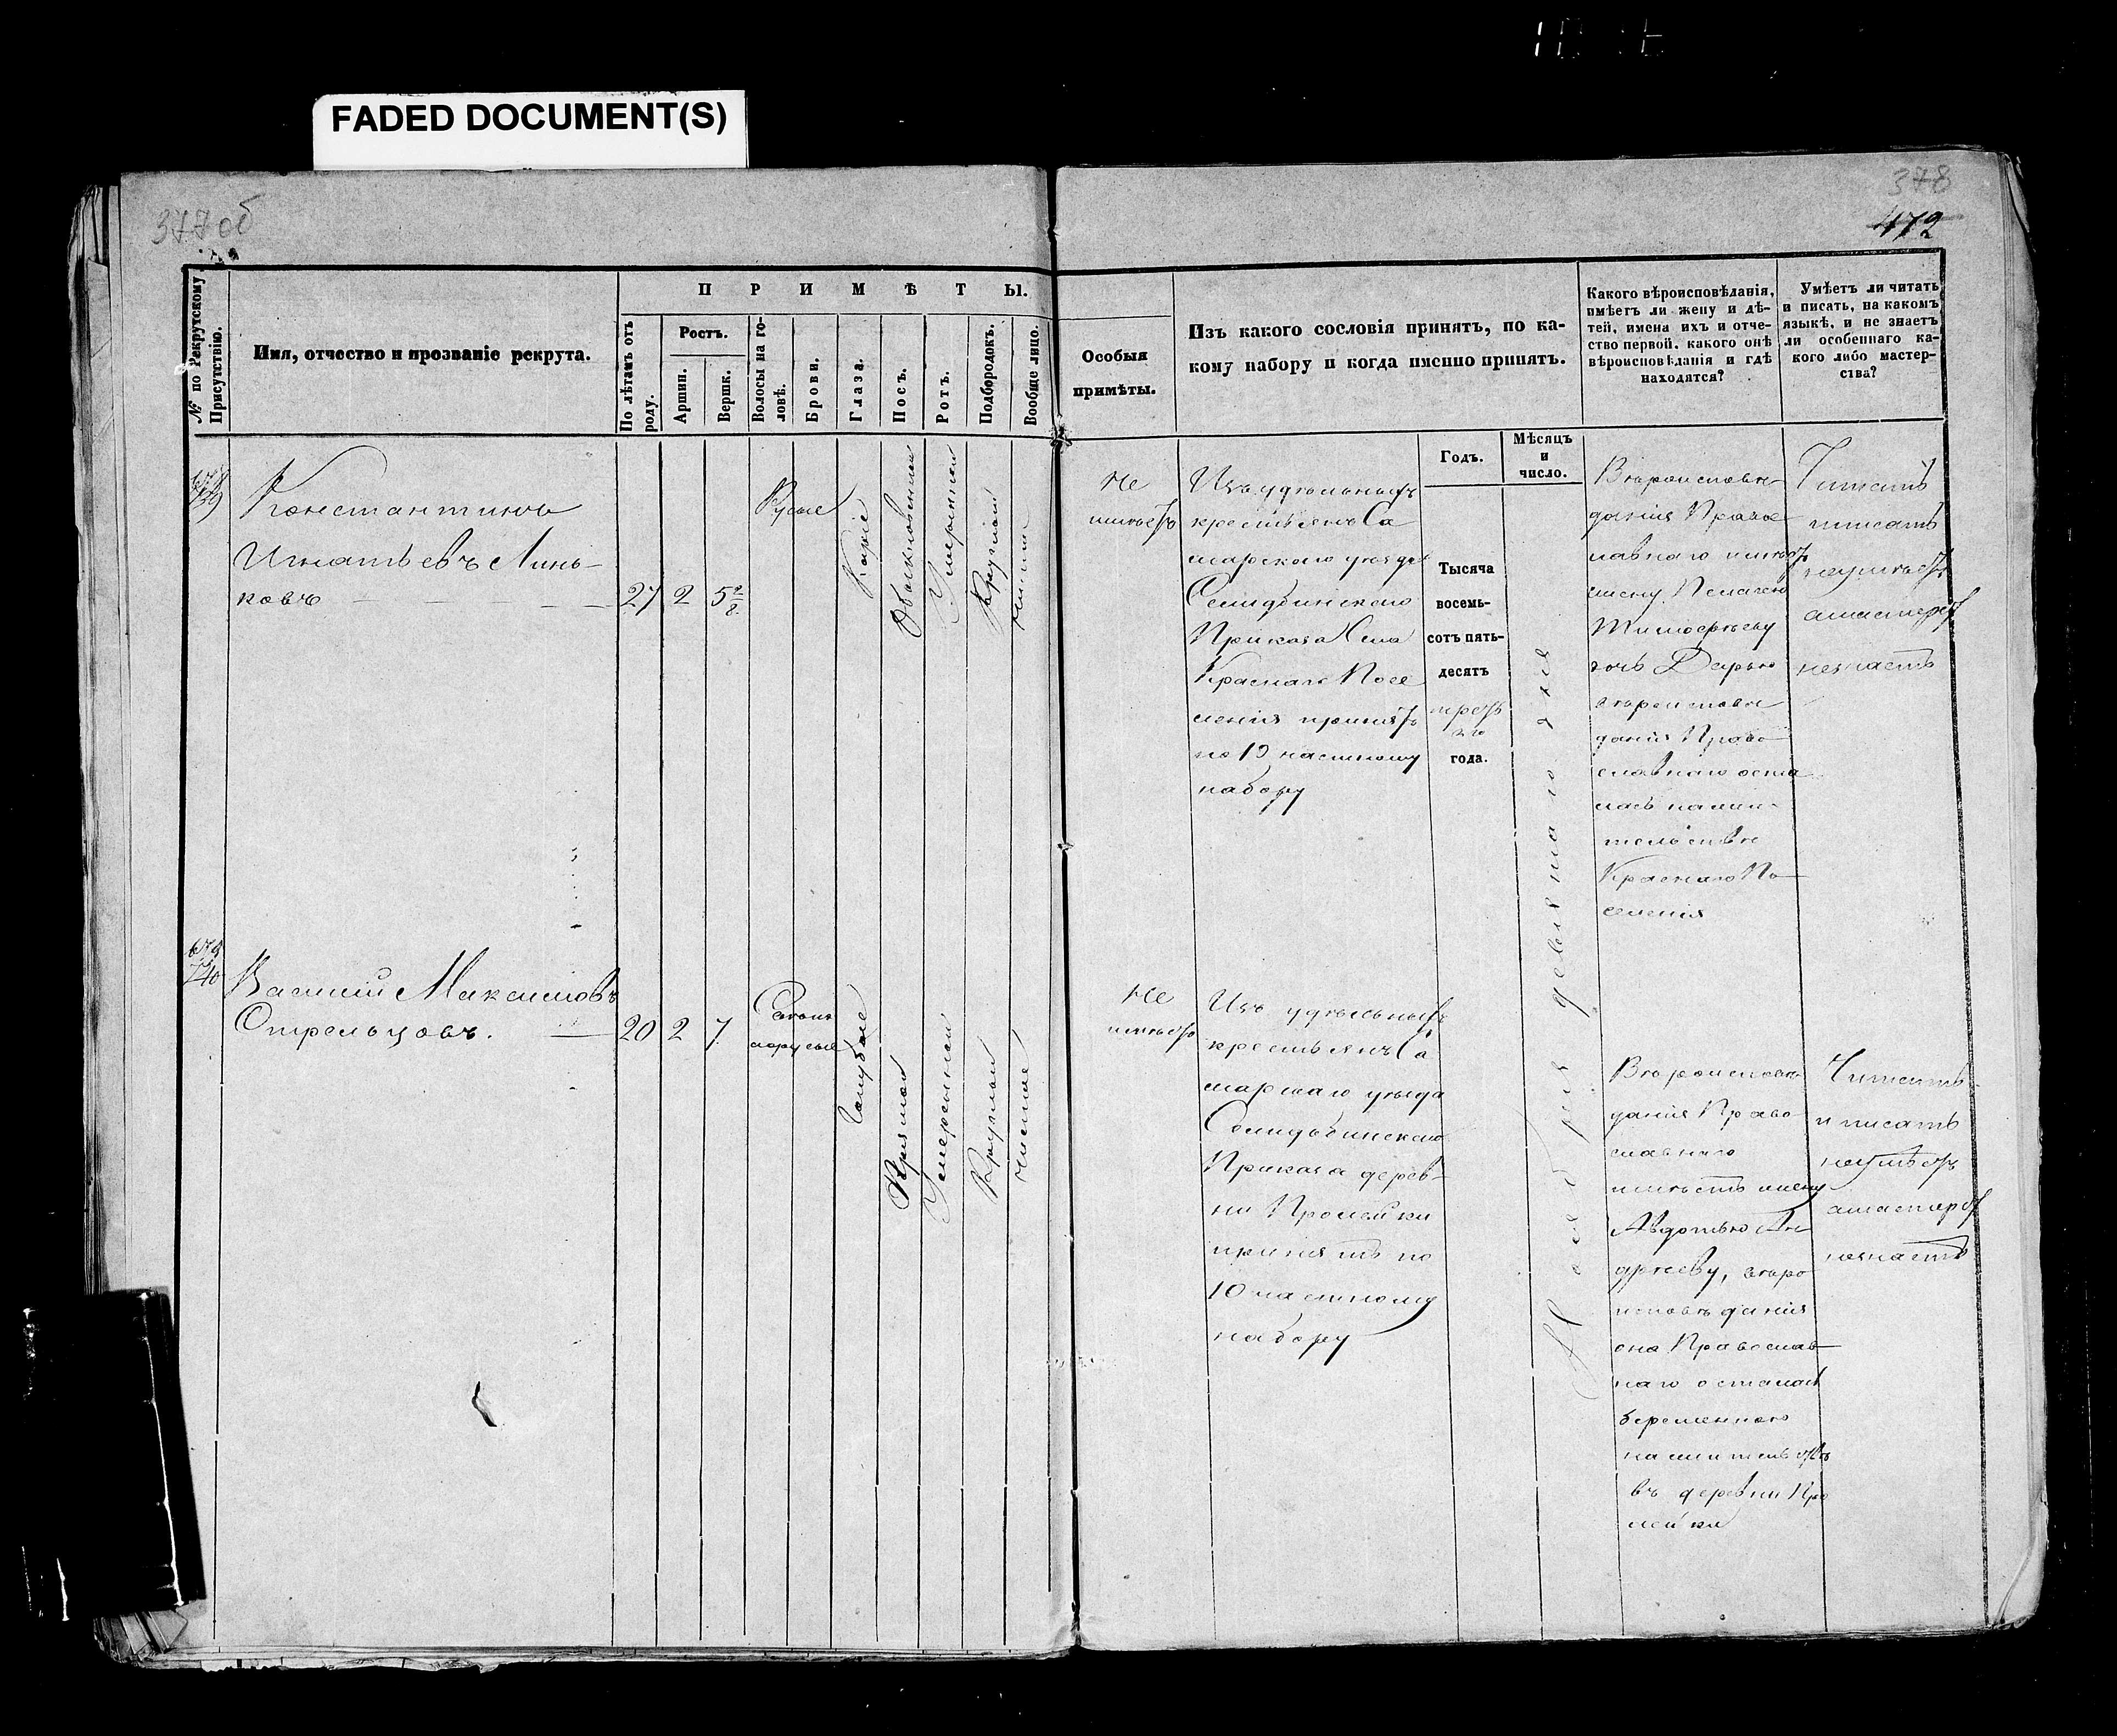 FADED DOCUMENT(S)
377об
378
472
№ по Рекрутскому Присутствію.
Имя, отчество и прозваніе рекрута.
ПРИМѢТЫ.
По лѣтамъ отъ роду.
Ростъ.
Аршин.
Вершк.
Волосы на головѣ.
Брови.
Глаза.
Носъ.
Ротъ.
Подбородокъ.
Вообще лицо.
Особыя
примѣты.
Изъ какого сословія принятъ, по ка-
кому набору и когда именно принятъ.
Годъ.
Мѣсяцъ
и
число.
Какого вѣроисповѣданія,
имѣетъ ли жену и дѣ-
тей, имена ихъ и отче-
ство первой, какого онѣ
вѣроисповѣданія и гдѣ
находятся?
Умѣетъ ли читать
и писать, на какомъ
языкѣ, и не знаетъ
ли особеннаго ка-
кого либо мастер-
ства?
739
Константинъ
Игнатьевъ Линь-
ковъ
27
2
5 2/8
Русые
Каріе
Обыкновенный
Умѣренный
Круглый
Чистое
Не
имѣетъ
Изъ удѣльныхъ
крестьянъ Са
марскаго уѣзда
Приказа Села
Краснаго Посе
ленія принятъ
по 10 частному
набору
Тысяча
восемь-
сотъ пять-
десятъ
третьяго
года.
Ноября девятаго дня
Вѣроисповѣ-
данія Право-
славнаго имѣетъ
жену Пелагею
Тимофѣеву
дочь Дарью
вѣроисповѣ
данія Право
славнаго оста
лась на жи-
тельствѣ
Краснаго По-
селенія
Читать
писать
неумѣетъ
а мастерст
незнаетъ
740
Василий Максимовъ
Стрельцовъ.
20
2
7
Свѣтло
русые
Голубые
Прямой
Умѣренный
Круглый
Чистое
Не
имѣетъ
Изъ удѣльныхъ
крестьянъ Са
марскаго уѣзда
Приказа дерев-
ни Пролейки
принятъ по
10 частному
набору
Вѣроисповѣ
данія Право
славнаго
имѣетъ жену
Авдотью Ан
дрѣеву, вѣро
исповѣданія
она Православ-
наго осталась
беременного
на жительствѣ
въ деревни Про
лейки
Читать
и писать
неумѣетъ
а мастерст
незнаетъ